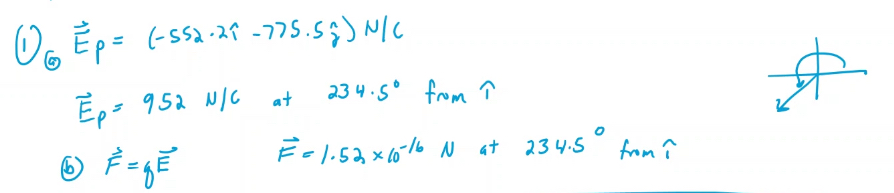 ① ⓐ E⃗p = (-552.2î -775.5ĵ) N/C
E⃗p = 952 N/C at 234.5° from î
ⓑ F⃗ = qE⃗ F⃗ = 1.52 × 10⁻¹⁶ N at 234.5° from î